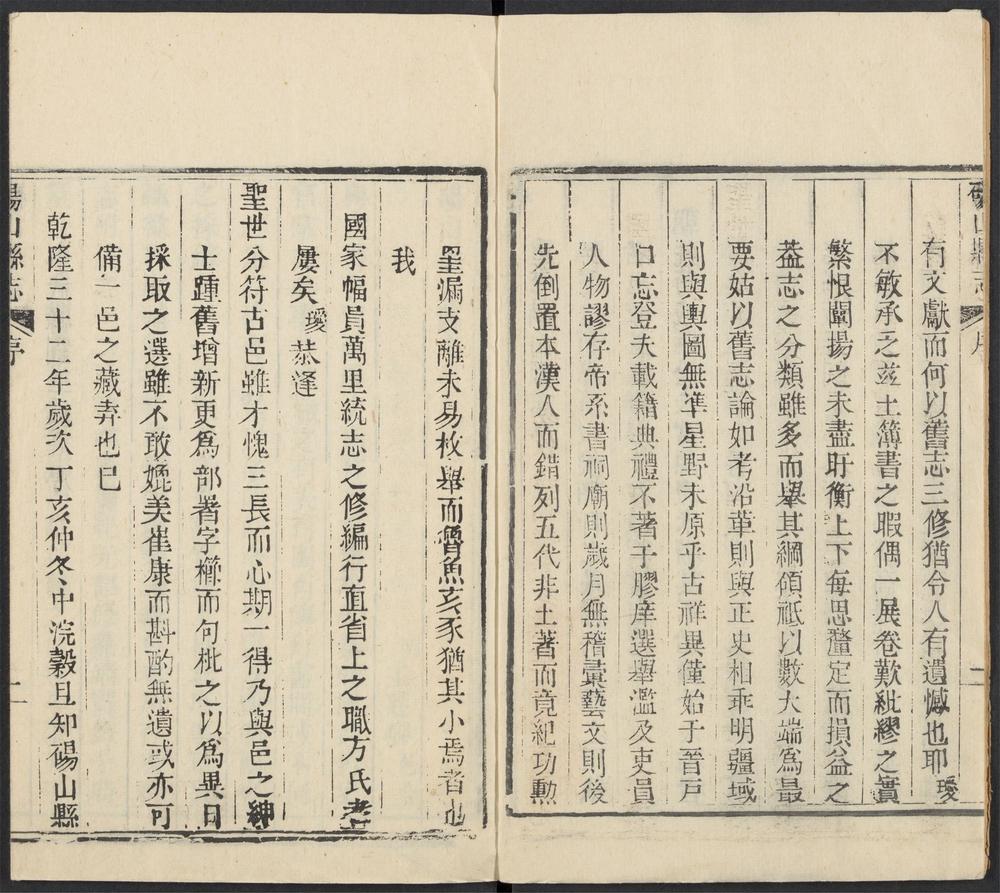 碭山縣志
序
二
有文獻而何以舊志三修猶令人有遺憾也耶瓊
不敏承之玆土簿書之暇偶一展卷歎紕繆之實
繁恨闡揚之未盡盱衡上下每思釐定而損益之
葢志之分類雖多而舉其綱領祗以數大端爲最
要姑以舊志論如考沿革則與正史相乖明疆域
則與輿圖無準星野未原乎古祥異僅始于晉戸
口忘登夫載籍典禮不著于膠庠選舉濫及吏員
人物謬存帝系書祠廟則歲月無稽彚藝文則後
先倒置本漢人而錯列五代非土著而竟紀功勲
罣漏支離未易枚舉而魯魚亥豕猶其小焉者也
我
國家幅員萬里統志之修編行直省上之職方氏者
屢矣瓊恭逢
聖世分符古邑雖才愧三長而心期一得乃與邑之紳
士踵舊增新更爲部署字櫛而句枇之以爲異日
採取之選雖不敢媲美崔康而斟酌無遺或亦可
備一邑之藏弆也已
乾隆三十二年歲次丁亥仲冬中浣穀旦知碭山縣
碭山縣志
序
二